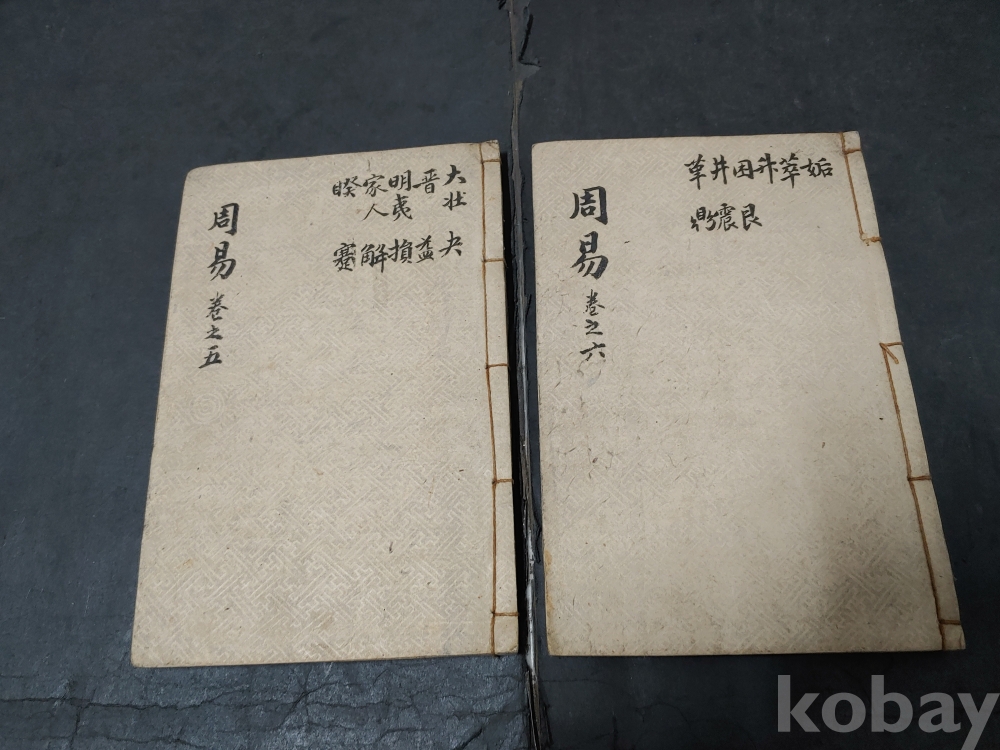 大壯 晋 明夷 家人 睽
蹇 解 損 益 夬
周易 卷之五
姤 萃 升 困 井 革
鼎 震 艮
周易 卷之六
kobay